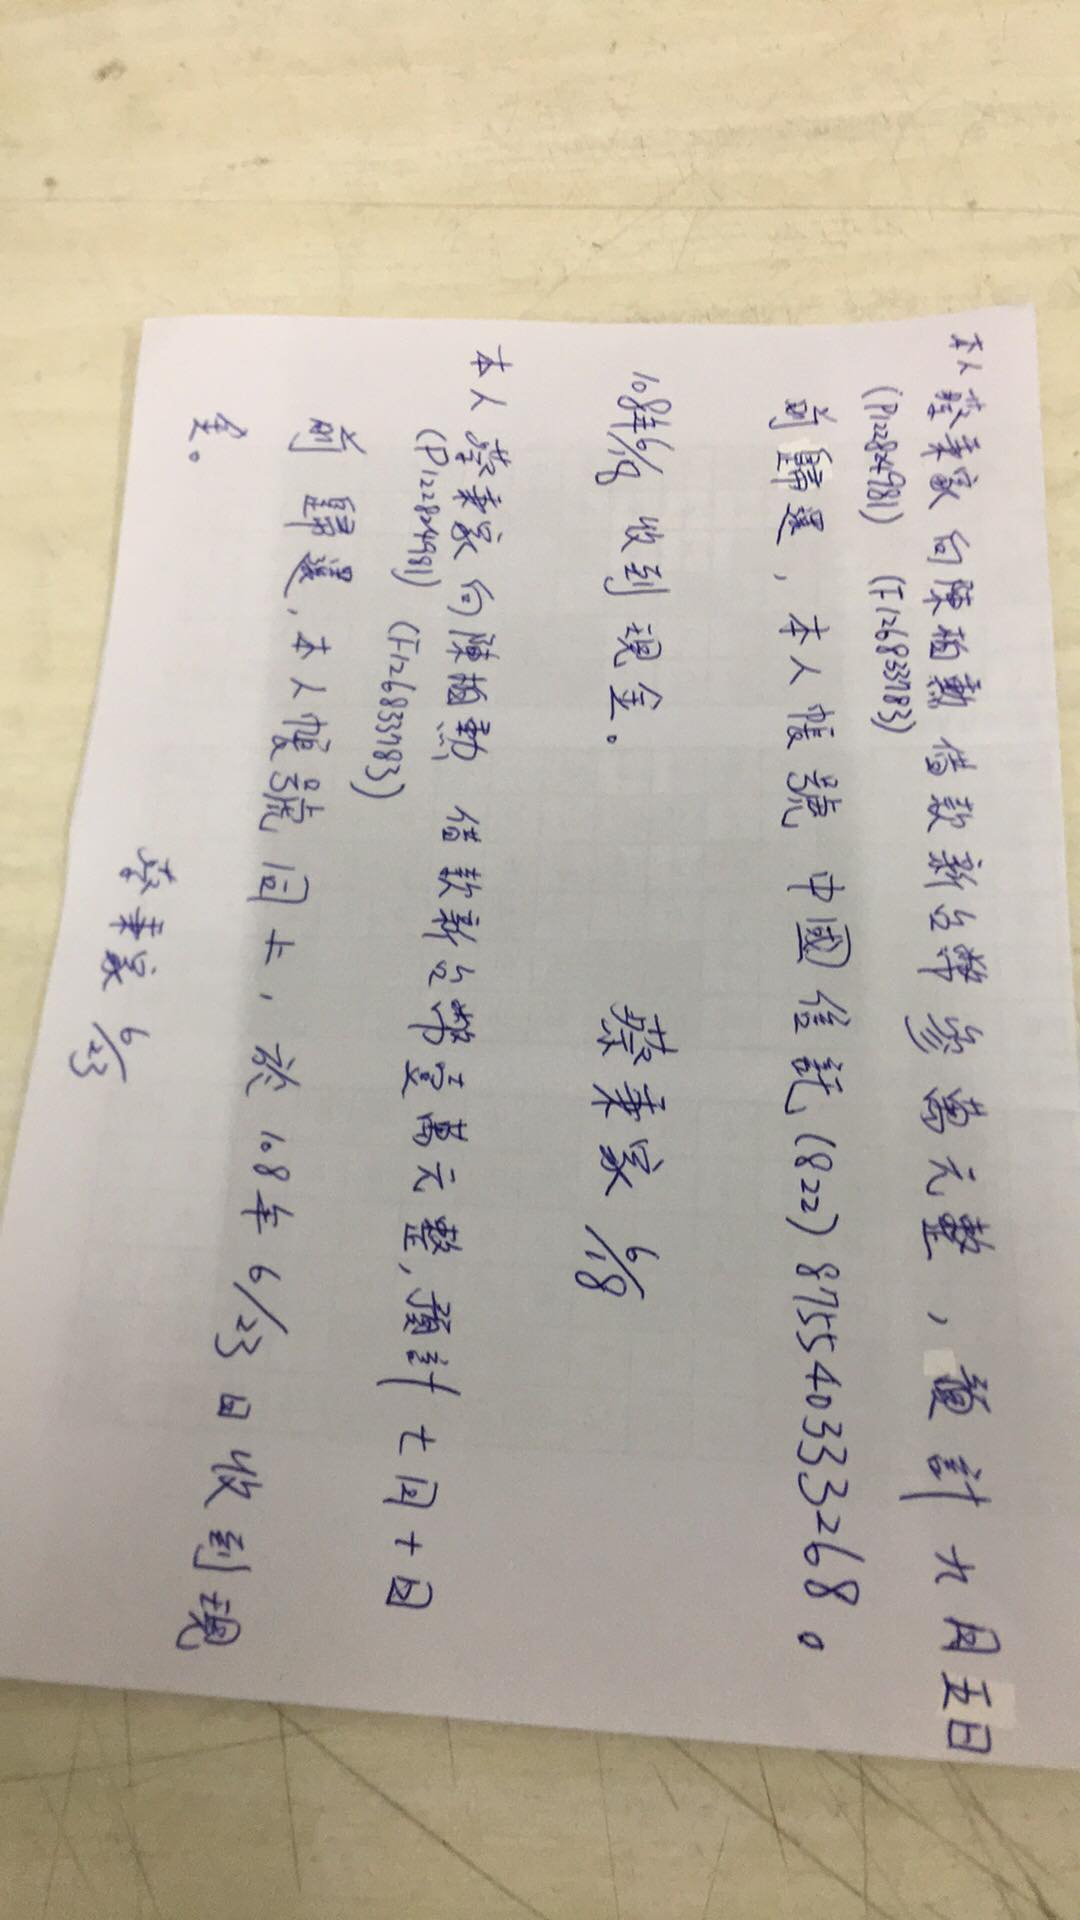 本人蔡秉家向陳栢勳借款新台幣參萬元整，預計七月五日
(P122824981) (F126833783)
前歸還，本人帳號 中國信託(822) 875540333268。
108年6/18 收到現金。 蔡秉家 6/18
本人蔡秉家向陳栢勳 借款新台幣壹萬元整，預計七月十日
(P122824981) (F126833783)
前歸還，本人帳號同上，於108年6/23日收到現
金。
蔡秉家 6/23